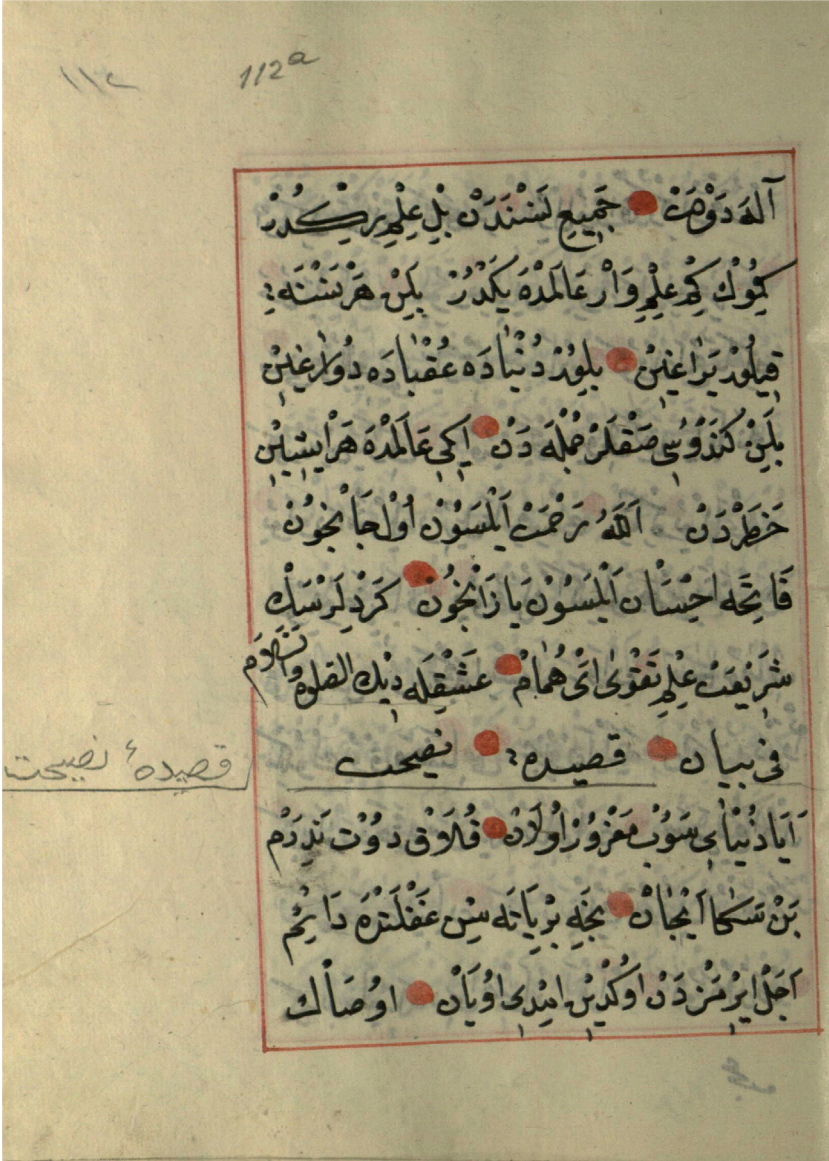 ١١٢
112a
آلهَ دَوْضَتْ ● جَمِيعِ نَسْنَدَنْ بِلِ عِلْمِ يَرَكْدُرْ
كِمُوْكْ كِمْ عِلْمِ وَارْ عَالَمْدَه يَكَدُرْ بِلَنْ هَرْ نَسْنَه
قِيلُورْ يَرَاغِنْ ● بِلُورْ دُنْيَادَه عُقْبَادَه دُورَاغِنْ
بِلَنْ كَنْدُوْسِى صَقْلَرْ جُمْلَه دَنْ ● اَيكِى عَالَمْدَه هَرْ اِيشِيْنِ
خَطَرْدَنْ اَللّٰهُ رَحْمَتْ اَيْلَسُوْنْ اُوْلْ جَاْنْجُوْنْ
فَاتِحَه اِحْسَانْ اَيْلَسُوْنْ يَازَانْجُوْنْ ● كَرْ دِلَرْسَكْ
شَرِيْعَتْ عِلْمِ تَقْوٰى اَىْ هُمَامْ ● عَشْقِلَه دِيْكْ الصَّلٰوةْ وَالسَّلَامْ
فى بيان ● قصيده ● نصيحت
قصيدهٔ نصيحت
اَيَا دُنْيَايِى سَوُبْ مَغْرُوْرْ اُوْلَانْ ● قُلَاقْ دُوْتْ نَدِرَمْ
بَنْ سَكَا اَىْ جَانْ ● نِجَه بِرْ يَاتَه سِنْ غَفْلَتْدَه دَائِمْ
اَجَلْ اِيْرْمَزْدَنْ اُوكْدِيْنْ اِمْدِى اُوْيَانْ ● اوُصَاْكْ